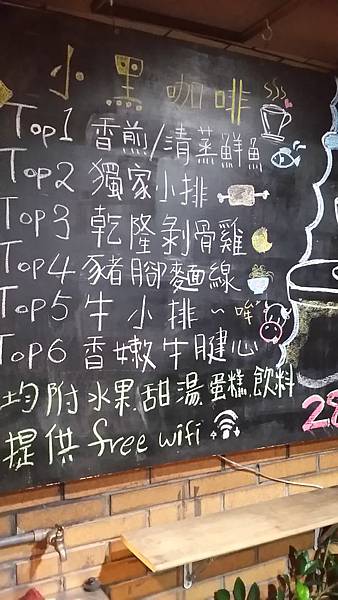 小黑咖啡
Top1 香煎/清蒸鮮魚
Top2 獨家小排
Top3 乾隆剝骨雞
Top4 豬腳麵線
Top5 牛小排~哞
Top6 香嫩牛腱心
均附水果.甜湯.蛋糕.飲料
提供free wifi
28